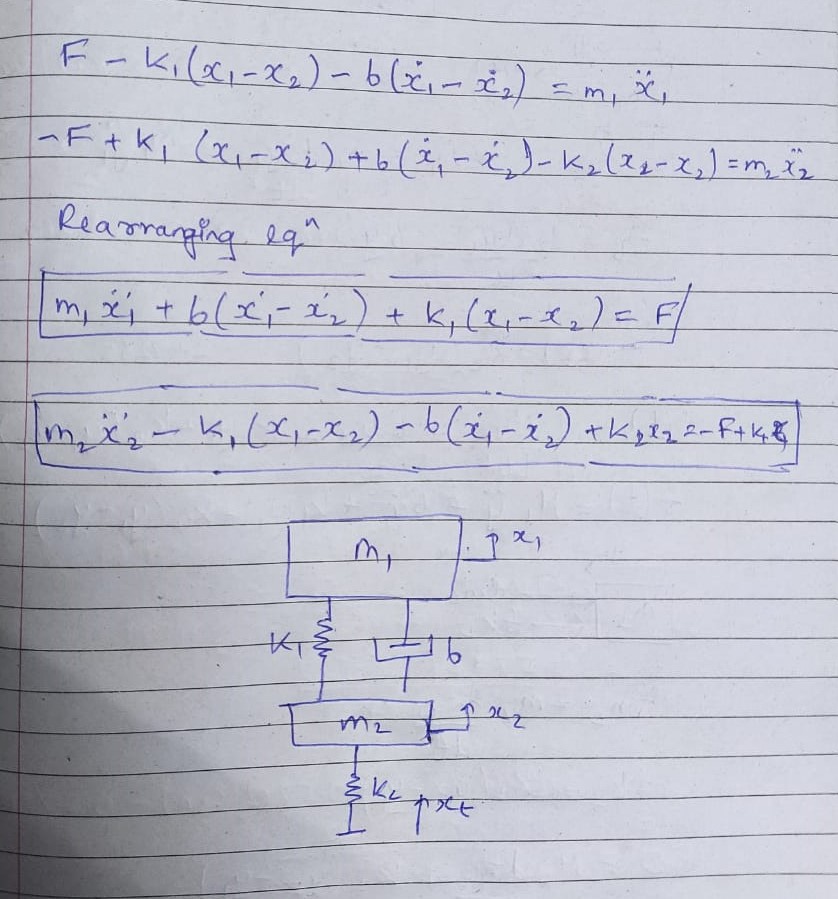 F − K₁(x₁−x₂) − b(ẋ₁ − ẋ₂) = m₁ ẍ₁
−F + K₁ (x₁−x₂) + b(ẋ₁ − ẋ₂) − K₂(x₂−x₂) = m₂ ẍ₂
Rearranging eqⁿ
m₁ ẍ₁ + b(ẋ₁ − ẋ₂) + K₁(x₁−x₂) = F
m₂ ẍ₂ − K₁(x₁−x₂) − b(ẋ₁ − ẋ₂) + K₂x₂ = −F + K
m₁ x₁
K₁ b
m₂ x₂
K₂ xt